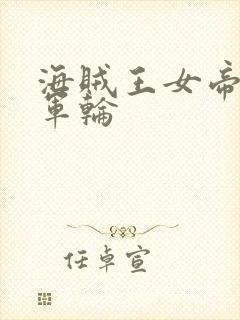 海賊王女帝
軍輪
任卓宣